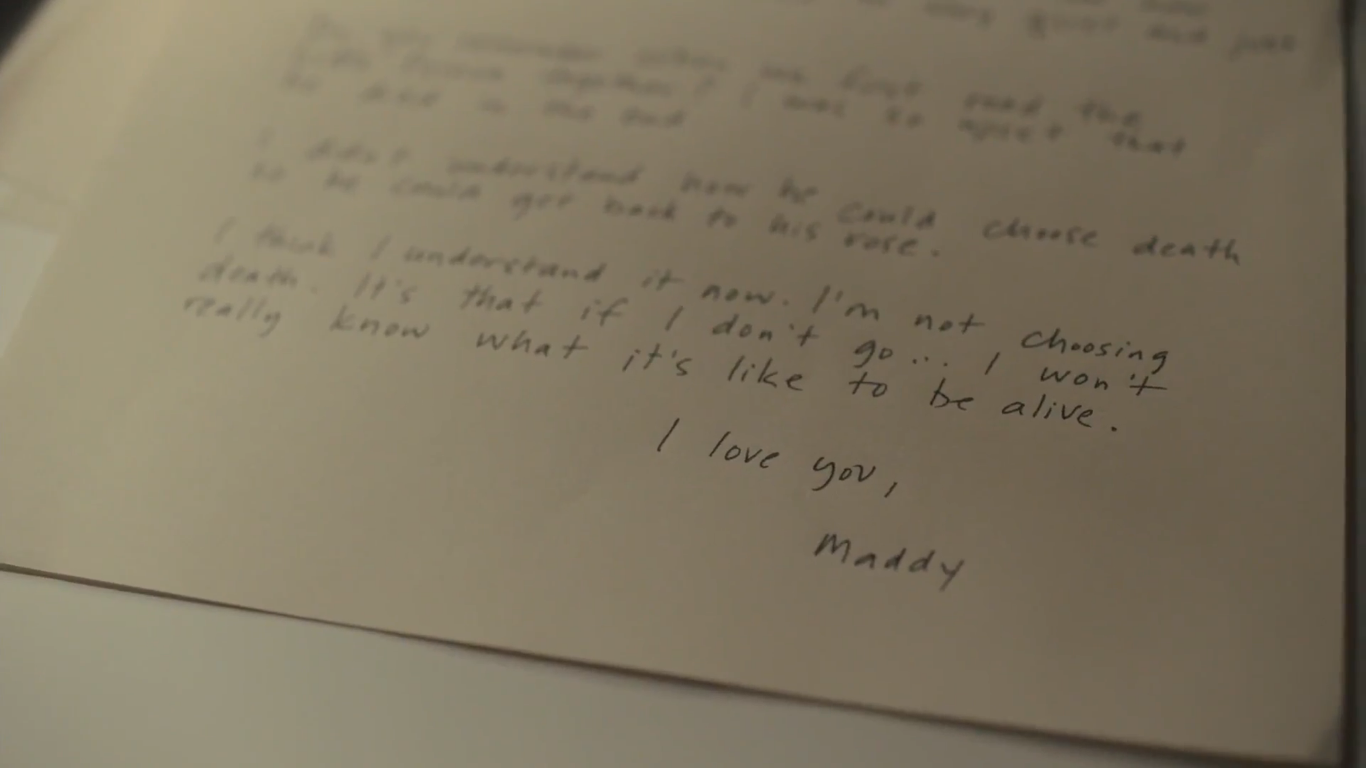 very quiet and just
remember when we first read the
together? I was so upset that
he died in the end
I didn't understand how he could choose death
so he could get back to his rose.
I think I understand it now. I'm not choosing
death. It's that if I don't go... I won't
really know what it's like to be alive.
I love you,
Maddy